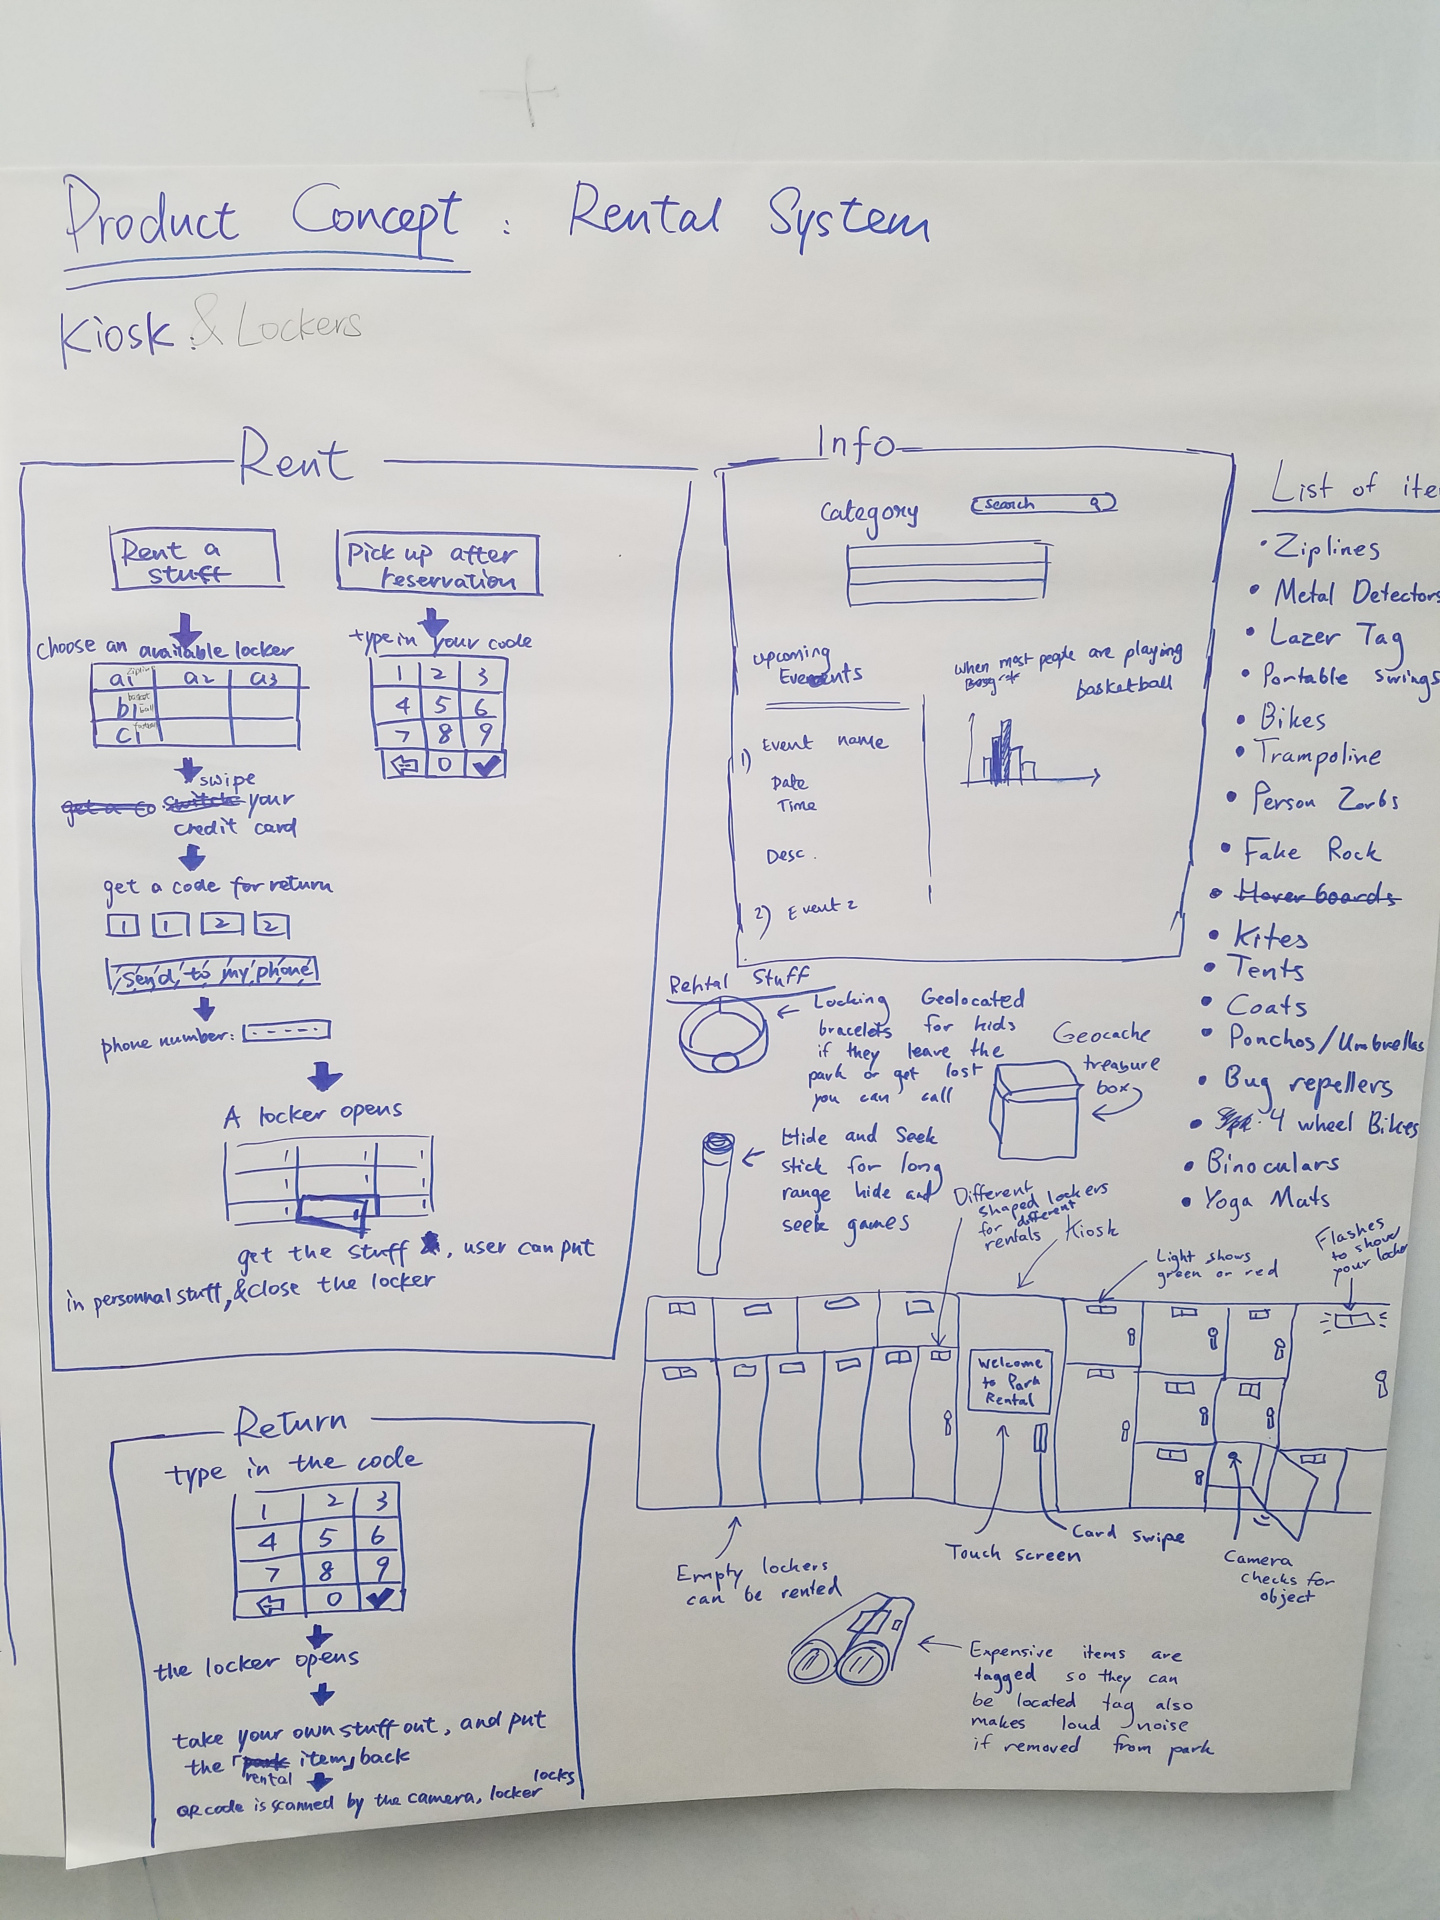 Product Concept : Rental System
Kiosk & Lockers
Rent
Rent a
stuff
Pick up after
reservation
choose an available locker
a1 zipline a2 a3
b1 basket
ball
c1
swipe
get a co switch your
credit card
get a code for return
1 1 2 2
send to my phone
phone number:
A locker opens
get the stuff , user can put
in personnal stuff, & close the locker
type in your code
1 2 3
4 5 6
7 8 9
0
Return
type in the code
1 2 3
4 5 6
7 8 9
0
the locker opens
take your own stuff out, and put
the 「park item」 back
rental
QR code is scanned by the camera, locker locks
Info
Category
search
Upcoming
Events
1) Event name
Date
Time
Desc.
2) Event 2
When most people are playing
basketball
Rental Stuff
Locking Geolocated
bracelets for kids
if they leave the
park or get lost
you can call
Geocache
treasure
box
Hide and Seek
stick for long
range hide and
seek games
Different
shaped lockers
for different
rentals
Kiosk
Light shows
green or red
Flashes
to show
your locker
Welcome
to Park
Rental
Empty lockers
can be rented
Touch screen
Card swipe
Camera
checks for
object
Expensive items are
tagged so they can
be located tag also
makes loud noise
if removed from park
List of ite
• Ziplines
• Metal Detectors
• Lazer Tag
• Portable swings
• Bikes
• Trampoline
• Person Zorbs
• Fake Rock
• Hover boards
• Kites
• Tents
• Coats
• Ponchos/Umbrellas
• Bug repellers
• 4 wheel Bikes
• Binoculars
• Yoga Mats